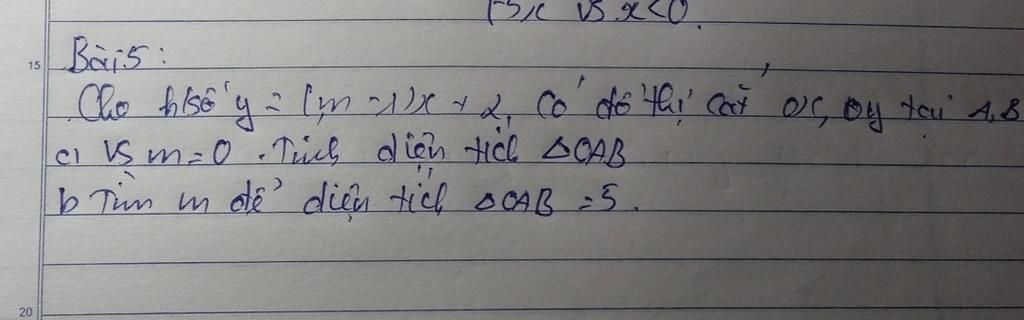 -5x vs x<0.
15
Bài 5:
Cho h/số y = (m-1)x + 2, có đồ thị cắt Ox, Oy tại A, B
a) Vs m=0. Tính diện tích △OAB
b Tìm m để diện tích △OAB = 5.
20